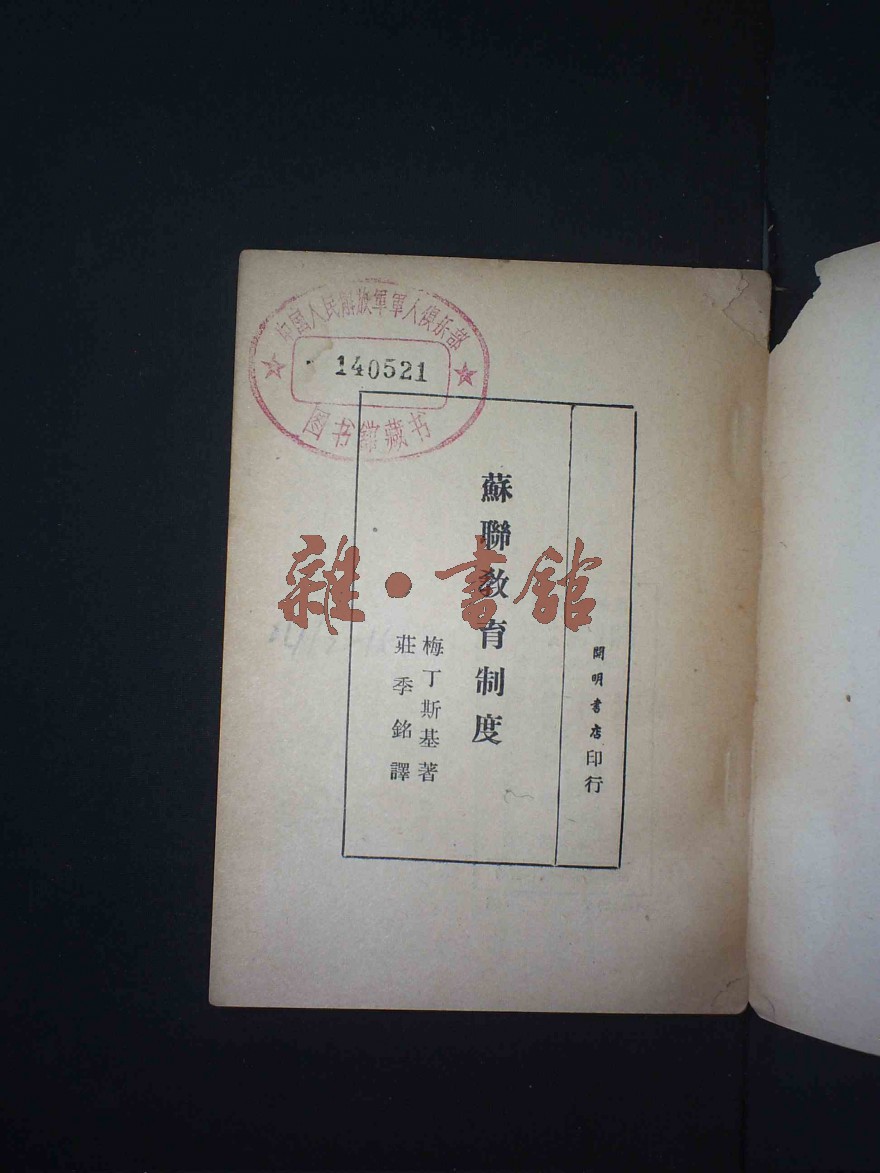 中国人民解放軍軍人俱乐部
140521
图书館藏书
蘇聯教育制度
梅丁斯基著
莊季銘譯
開明書店印行
雜·書館